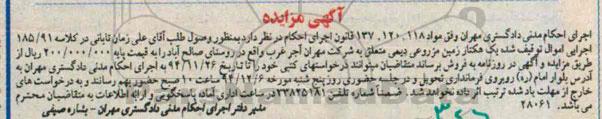 آگهی مزایده
اجرای احکام مدنی دادگستری مهران وفق مواد ۱۱۸، ۱۲۰، ۱۳۷ قانون اجرای احکام در نظر دارد بمنظور وصول طلب آقای علی زمان تایانی در کلاسه ۱۸۵/۹۱
اجرایی اموال توقیف شده یک هکتار زمین مزروعی دیمی متعلق به شرکت مهران آجر غرب واقع در روستای صالح آباد را به قیمت پایه ۲۰۰/۰۰۰/۰۰۰ ریال از
طریق مزایده و آگهی در روزنامه به فروش برساند متقاضیان میتوانند درخواستهای کتبی خود را تا تاریخ ۹۴/۱۱/۲۶ به اجرای احکام مدنی دادگستری مهران به
آدرس بلوار امام (ره) روبروی فرمانداری تحویل و در جلسه حضوری روز پنج شنبه مورخه ۹۴/۱۲/۶ ساعت ۱۰ صبح حضور بهم رسانند و به درخواست های
خارج از مهلت یاد شده ترتیب اثر داده نخواهد شد. ضمناً شماره تلفن ۳۳۸۲۵۱۸۱ در ساعت اداری آماده پاسخگویی و ارائه اطلاعات به متقاضیان محترم
می باشد. ۲۸۰۶۱
مدیر دفتر اجرای احکام مدنی دادگستری مهران - بشاره صیفی